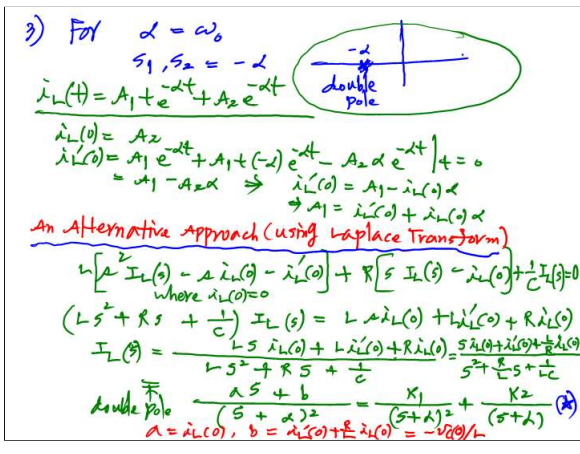 3) For α = ω₀
s₁, s₂ = -α
-α
double pole
i_L(t) = A₁ t e^{-αt} + A₂ e^{-αt}
i_L(0) = A₂
i_L'(0) = A₁ e^{-αt} + A₁ t (-α) e^{-αt} - A₂ α e^{-αt} |t = 0
= A₁ - A₂α ⇒ i_L'(0) = A₁ - i_L(0) α
⇒ A₁ = i_L'(0) + i_L(0) α
An Alternative Approach (using Laplace Transform)
L[s² I_L(s) - s i_L(0) - i_L'(0)] + R[s I_L(s) - i_L(0)] + 1/C I_L(s) = 0
where i_L(0) = 0
(Ls² + Rs + 1/C) I_L(s) = L s i_L(0) + L i_L'(0) + R i_L(0)
I_L(s) = (L s i_L(0) + L i_L'(0) + R i_L(0)) / (L s² + R s + 1/C) = (s i_L(0) + i_L'(0) + R/L i_L(0)) / (s² + R/L s + 1/LC)
double pole (a s + b) / (s + α)² = K₁ / (s + α)² + K₂ / (s + α) (*)
a = i_L(0), b = i_L'(0) + R/L i_L(0) = -v_C(0)/L